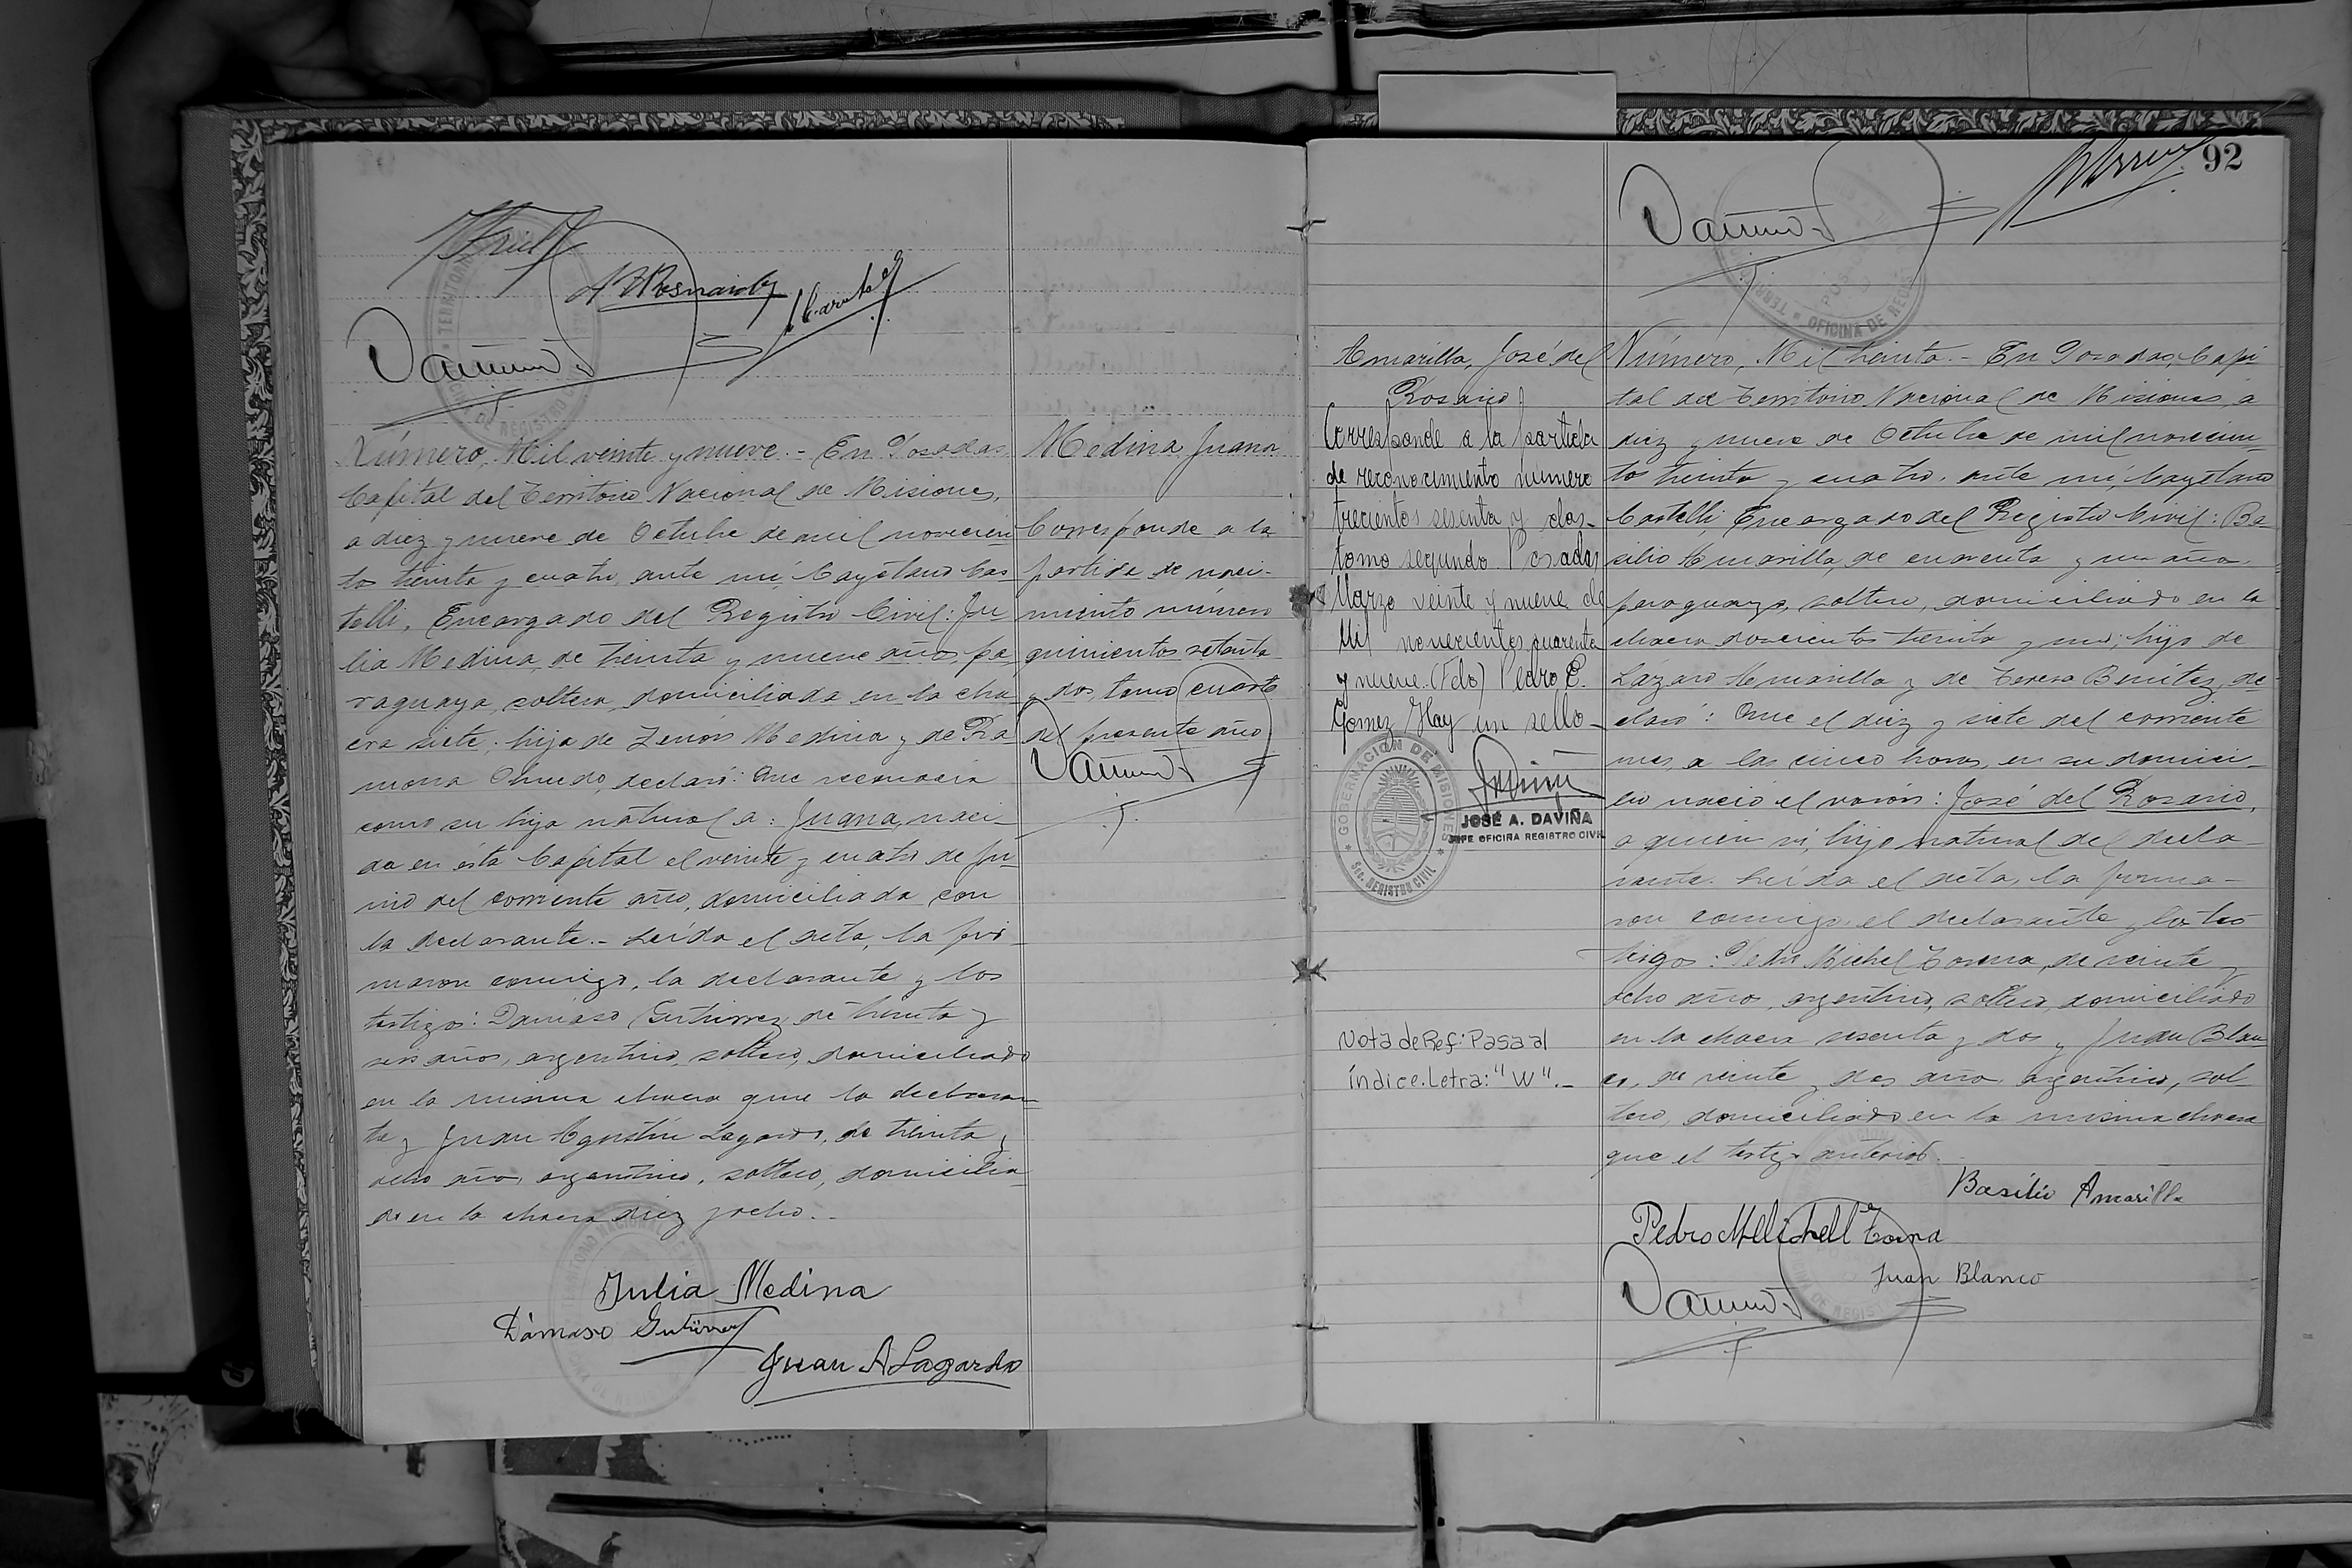 Número, Mil veinte y nueve.- En Posadas
Capital del Territorio Nacional de Misiones,
a diez y nueve de Octubre de mil novecien
tos treinta y cuatro, ante mí, Cayetano Cas
telli, Encargado del Registro Civil: Ju
lia Medina, de treinta y nueve años, pa
raguaya, soltera, domiciliada en la cha
cra siete, hija de Zenón Medina y de Ra
mona Olmedo, declaró: Que reconocia
como su hija natural a: Juana, naci
da en ésta Capital el veinte y cuatro de ju
nio del corriente año, domiciliada con
la declarante.- Leída el acta, la fir
maron conmigo, la declarante y los
testigos: Dámaso Gutierrez, de treinta y
seis años, argentino, soltero, domiciliado
en la misma chacra que la declaran
te y Juan Agustín Lagardo, de treinta y
ocho años, argentino, soltero, domicilia
do en la chacra diez y ocho.-
Julia Medina
Dámaso Gutiérrez
Juan A Lagardo
Medina Juana
Corresponde a la
partida de naci-
miento número
quinientos setenta
y dos, tomo cuarto
del presente año
92
Amarilla, José del
Rosario
Corresponde a la partida
de reconocimiento número
trecientos sesenta y dos-
tomo segundo. Posadas
Marzo veinte y nueve de
Mil novecientos cuarenta
y nueve. (Fdo) Pedro E.
Gomez Hay un sello-
GOBERNACIÓN DE MISIONES
Sec. REGISTRO CIVIL
JOSÉ A. DAVIÑA
JEFE OFICINA REGISTRO CIVIL
Nota de Ref: Pasa al
índice. Letra: "W".-
OFICINA DE
Número, Mil treinta.- En Posadas, Capi
tal del Territorio Nacional de Misiones, a
diez y nueve de Octubre de mil novecien
tos treinta y cuatro, ante mí, Cayetano
Castelli, Encargado del Registro Civil: Ba
silio Amarilla, de cuarenta y un años,
paraguayo, soltero, domiciliado en la
chacra doscientos treinta y uno, hijo de
Lázaro Amarilla y de Teresa Benítez, de
claró: Que el diez y siete del corriente
mes, a las cinco horas, en su domici-
lio nació el varón: José del Rosario,
a quien ví, hijo natural del decla-
rante. Leída el acta, la firma-
ron conmigo, el declarante y los tes
tigos: Pedro Michel Torena, de veinte y
ocho años, argentino, soltero, domiciliado
en la chacra sesenta y dos y Juan Blan
co, de veinte y dos años, argentino, sol
tero, domiciliado en la misma chacra
que el testigo anterior.
Basilio Amarilla
Pedro
Juan Blanco